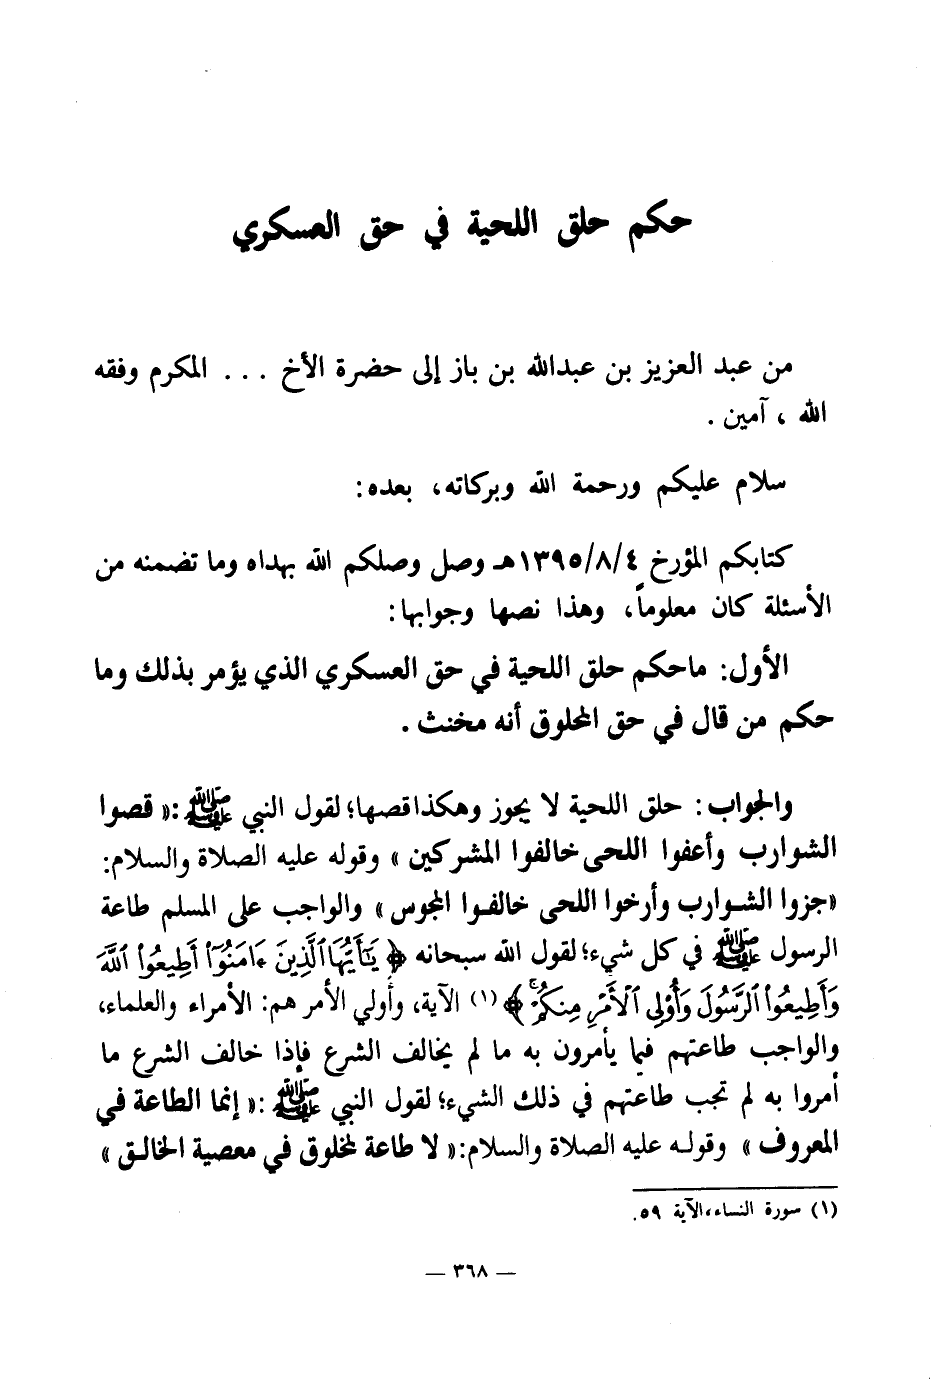 حكم حلق اللحية في حق العسكري
من عبد العزيز بن عبدالله بن باز إلى حضرة الأخ . . . المكرم وفقه
الله ، آمين .
سلام عليكم ورحمة الله وبركاته، بعده:
كتابكم المؤرخ ١٣٩٥/٨/٤هـ وصل وصلكم الله بهداه وما تضمنه من
الأسئلة كان معلوماً، وهذا نصها وجوابها:
الأول: ماحكم حلق اللحية في حق العسكري الذي يؤمر بذلك وما
حكم من قال في حق المحلوق أنه مخنث .
والجواب: حلق اللحية لا يجوز وهكذا قصها؛ لقول النبي ﷺ :« قصوا
الشوارب وأعفوا اللحى خالفوا المشركين » وقوله عليه الصلاة والسلام:
«جزوا الشوارب وأرخوا اللحى خالفوا المجوس » والواجب على المسلم طاعة
الرسول ﷺ في كل شيء؛ لقول الله سبحانه ﴿ يَٰٓأَيُّهَا ٱلَّذِينَ ءَامَنُوٓاْ أَطِيعُواْ ٱللَّهَ
وَأَطِيعُواْ ٱلرَّسُولَ وَأُوْلِى ٱلْأَمْرِ مِنكُمْۚ ﴾ (١) الآية، وأولي الأمر هم: الأمراء والعلماء،
والواجب طاعتهم فيما يأمرون به ما لم يخالف الشرع فإذا خالف الشرع ما
أمروا به لم تجب طاعتهم في ذلك الشيء؛ لقول النبي ﷺ :« إنما الطاعة في
المعروف » وقوله عليه الصلاة والسلام:« لا طاعة لمخلوق في معصية الخالق »
(١) سورة النساء،الآية ٥٩.
— ٣٦٨ —